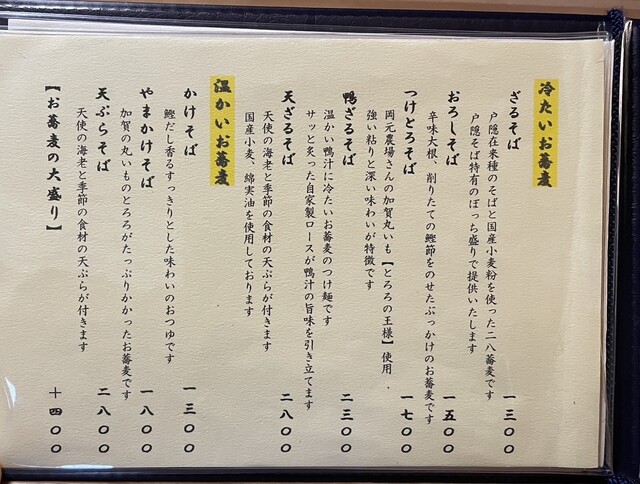 冷たいお蕎麦
ざるそば 一三〇〇
戸隠在来種のそばと国産小麦粉を使った二八蕎麦です
戸隠そば特有のぼっち盛りで提供いたします
おろしそば 一五〇〇
辛味大根、削りたての鰹節をのせたぶっかけのお蕎麦です
つけとろそば 一七〇〇
岡元農場さんの加賀丸いも【とろろの王様】使用
強い粘りと深い味わいが特徴です
鴨ざるそば 二三〇〇
温かい鴨汁に冷たいお蕎麦のつけ麺です
サッと炙った自家製ロースが鴨汁の旨味を引き立てます
天ざるそば 二八〇〇
天使の海老と季節の食材の天ぷらが付きます
国産小麦、綿実油を使用しております
温かいお蕎麦
かけそば 一三〇〇
鰹だし香るすっきりとした味わいのおつゆです
やまかけそば 一八〇〇
加賀の丸いものとろろがたっぷりかかったお蕎麦です
天ぷらそば 二八〇〇
天使の海老と季節の食材の天ぷらが付きます
【お蕎麦の大盛り】 +四〇〇